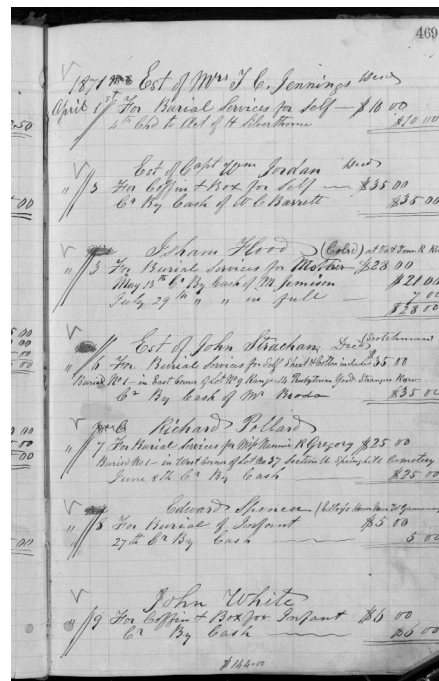 469
1871 Est of Mrs T. C. Jennings Decd
April 1st For Burial Services for Self — $10 00
4th Chd to Act of H Silverthorne $10 00
Est of Capt Wm Jordan Decd
" 3 For Coffin & Box for Self — $35 00
Cr By Cash of W C Barrett $35 00
Isham Flood (Colrd) at Va & Tenn R R
" 3 For Burial Services for Mother $28 00
May 13th Cr By Cash of M Jemison $21 00
July 29th " " in full — 7 00
$28 00
Est of John Strachan Decd (Scotchman)
" 6 For Burial Services for Self Sheet & Cotton included $35 00
Buried No 1 - in East Corner of Lot No 9 Range 14 Presbyterian Yard Strangers Row
Cr By Cash of Mr Broda $35 00
Richard Pollard
" 7 For Burial Services for Miss Nannie R Gregory $25 00
Buried No 1 - in West Corner of Lot No 37 Section Springhill Cemetery
June 8th Cr By Cash — $25 00
Edward Spencer
" 8 For Burial of Infant $5 00
27th Cr By Cash — 5 00
John White
" 9 For Coffin & Box for Infant $6 00
Cr By Cash — $6 00
$144.00